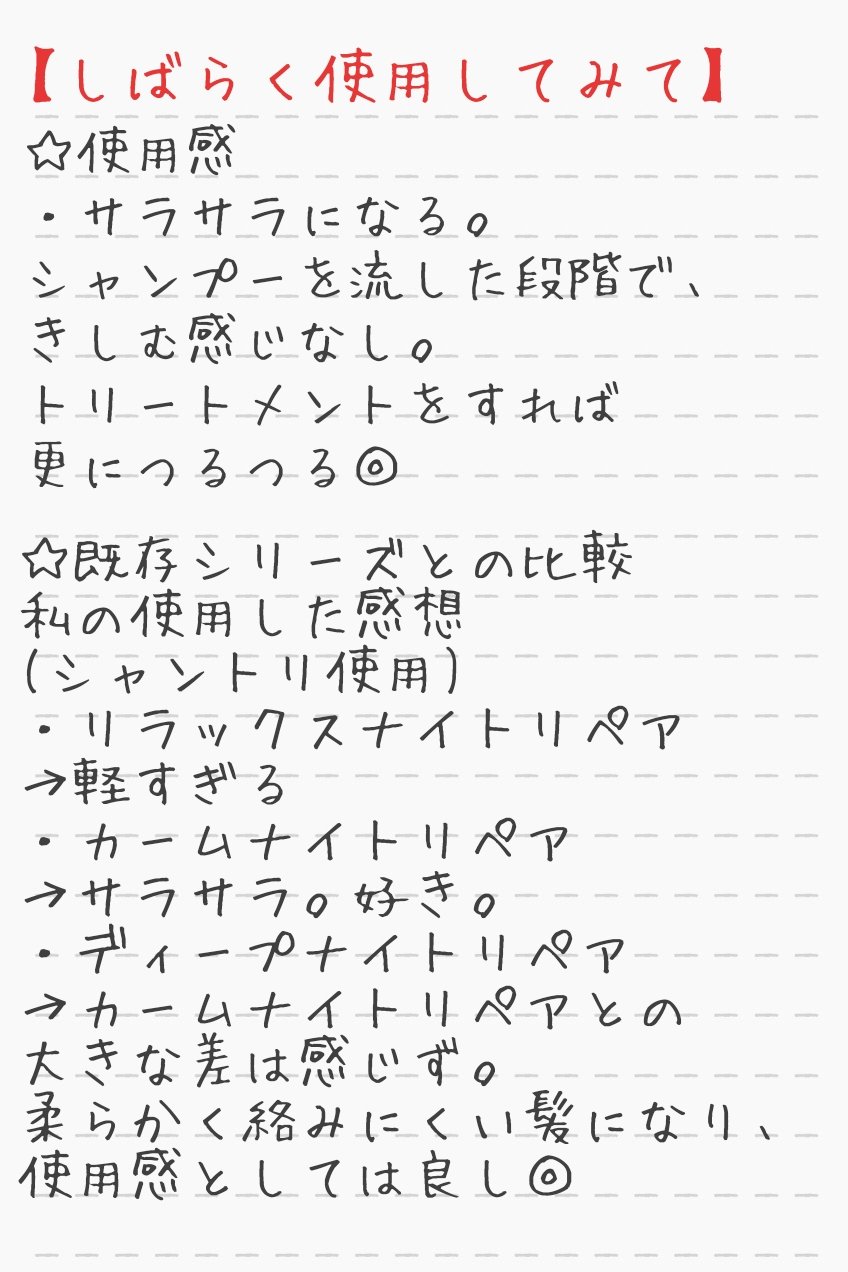 【しばらく使用してみて】
☆使用感
・サラサラになる。
シャンプーを流した段階で、
きしむ感じなし。
トリートメントをすれば
更につるつる◎
☆既存シリーズとの比較
私の使用した感想
(シャントリ使用)
・リラックスナイトリペア
→軽すぎる
・カームナイトリペア
→サラサラ。好き。
・ディープナイトリペア
→カームナイトリペアとの
大きな差は感じず。
柔らかく絡みにくい髪になり、
使用感としては良し◎